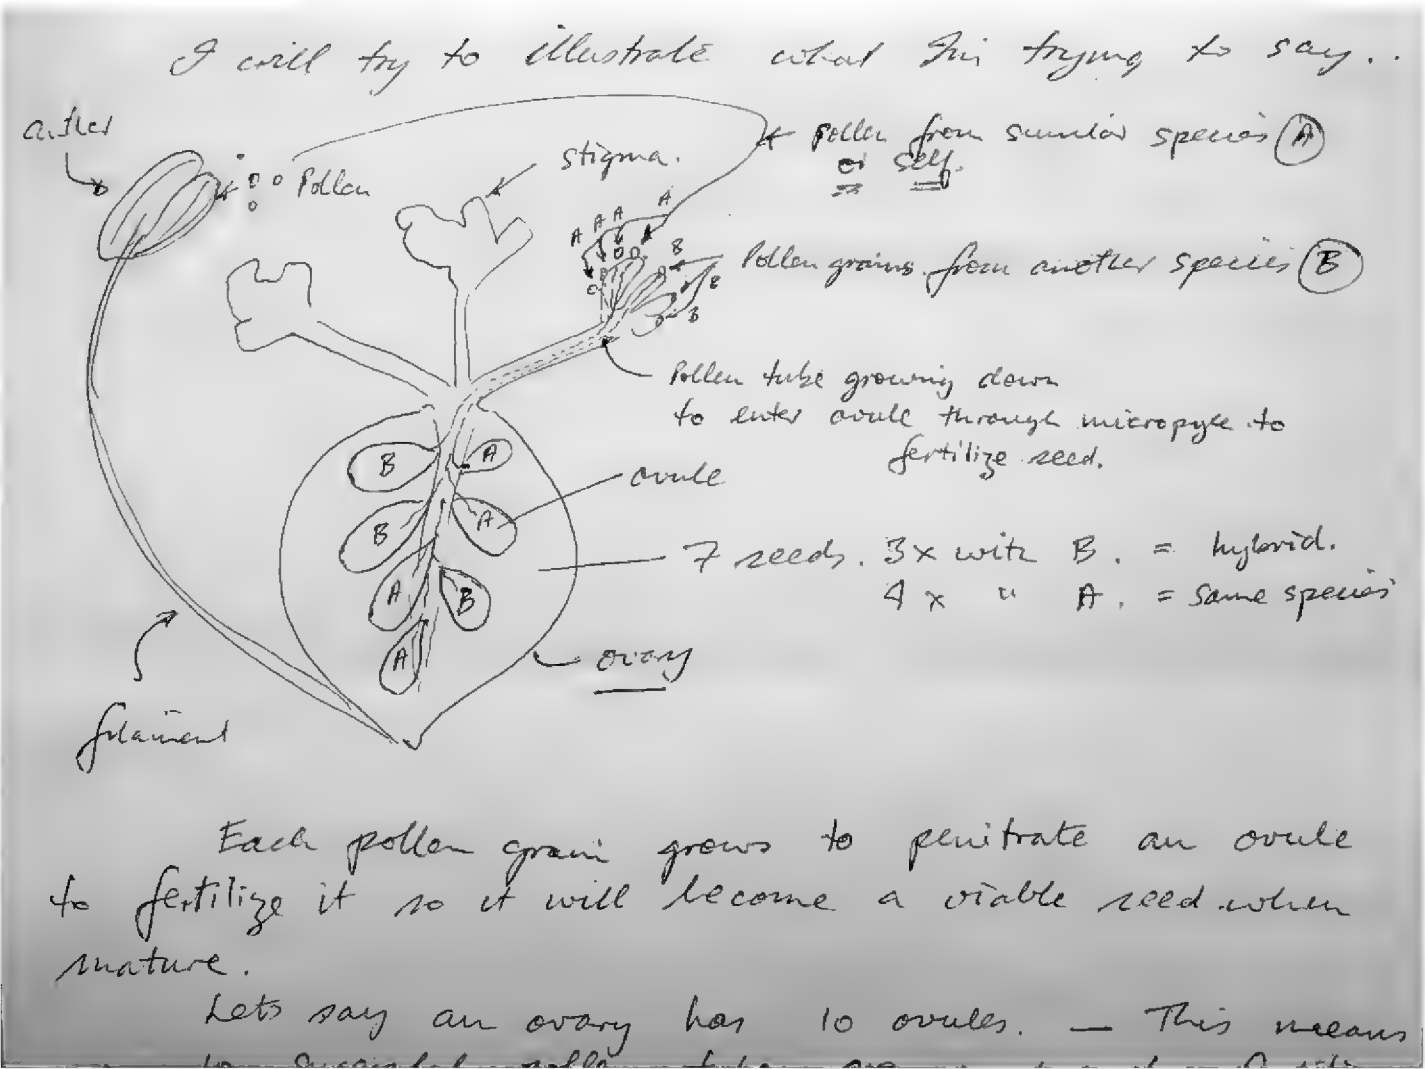 I will try to illustrate what I'm trying to say..
anther
Pollen
stigma.
Pollen from similar species (A)
or self.
A A A A
B
B
B
Pollen grains from another species (B)
Pollen tube growing down
to enter ovule through micropyle to
fertilize seed.
B A
ovule
B A
7 seeds. 3x with B. = hybrid.
4x " A. = same species
A B
A
ovary
filament
Each pollen grain grows to penitrate an ovule
to fertilize it so it will become a viable seed when
mature.
Lets say an ovary has 10 ovules. — This means